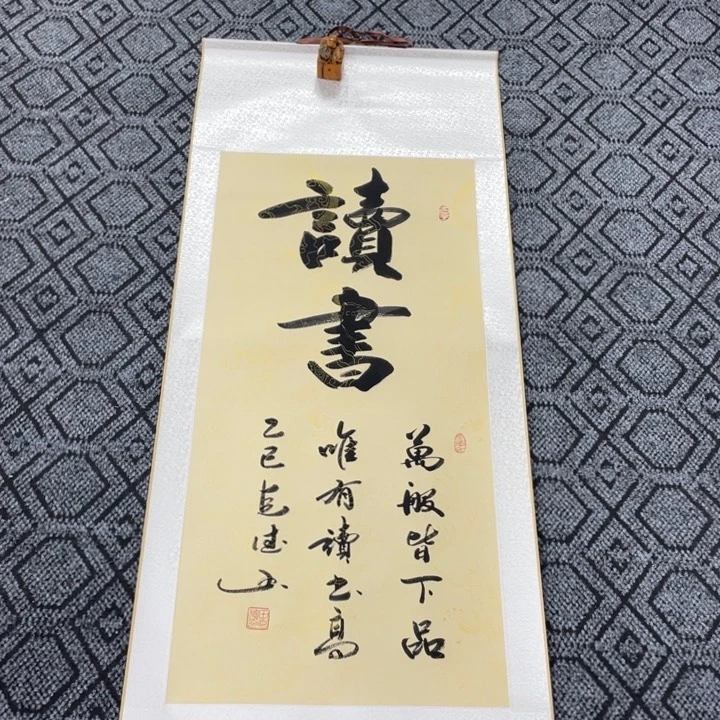 讀書
萬般皆下品
唯有讀书高
乙巳